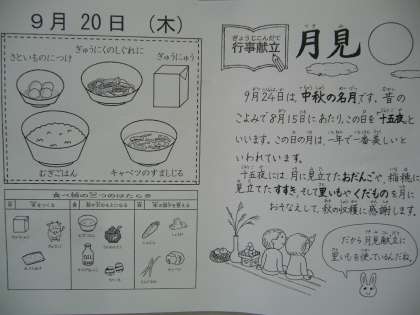 9月20日（木）
さといものにつけ
ぎゅうにくのしぐれに
ぎゅうにゅう
むぎごはん
キャベツのすましじる
食べ物の三つのはたらき
ぎょうじこんだて
行事献立
月見
9月24日は、中秋の名月です。昔の
こよみで8月15日にあたり、この日を十五夜と
いいます。この日の月は、一年で一番美しいと
いわれています。
十五夜には、月に見立てたおだんごや、稲穂に
見立てたすすき、そして里いもやくだものを月に
おそなえして、秋の収穫に感謝します。
だから月見献立に
里いもを使っているんだね。